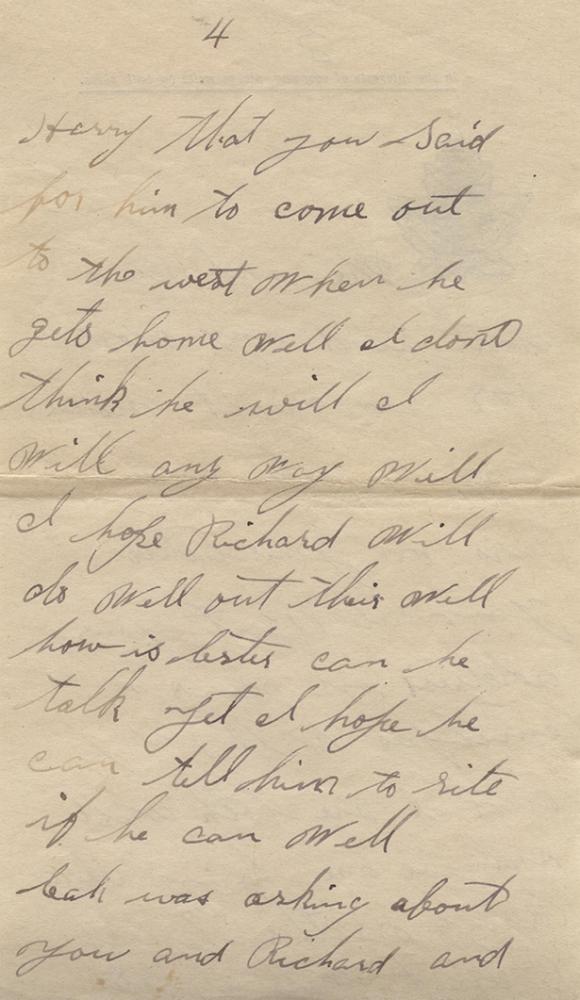 4
Harry that you said
for him to come out
to the west When he
gets home Well I dont
think he will I
Will any Way Will
I hope Richard Will
do Well out this Well
how is lester can he
talk yet I hope he
can tell him to rite
if he can Well
leah was asking about
you and Richard and